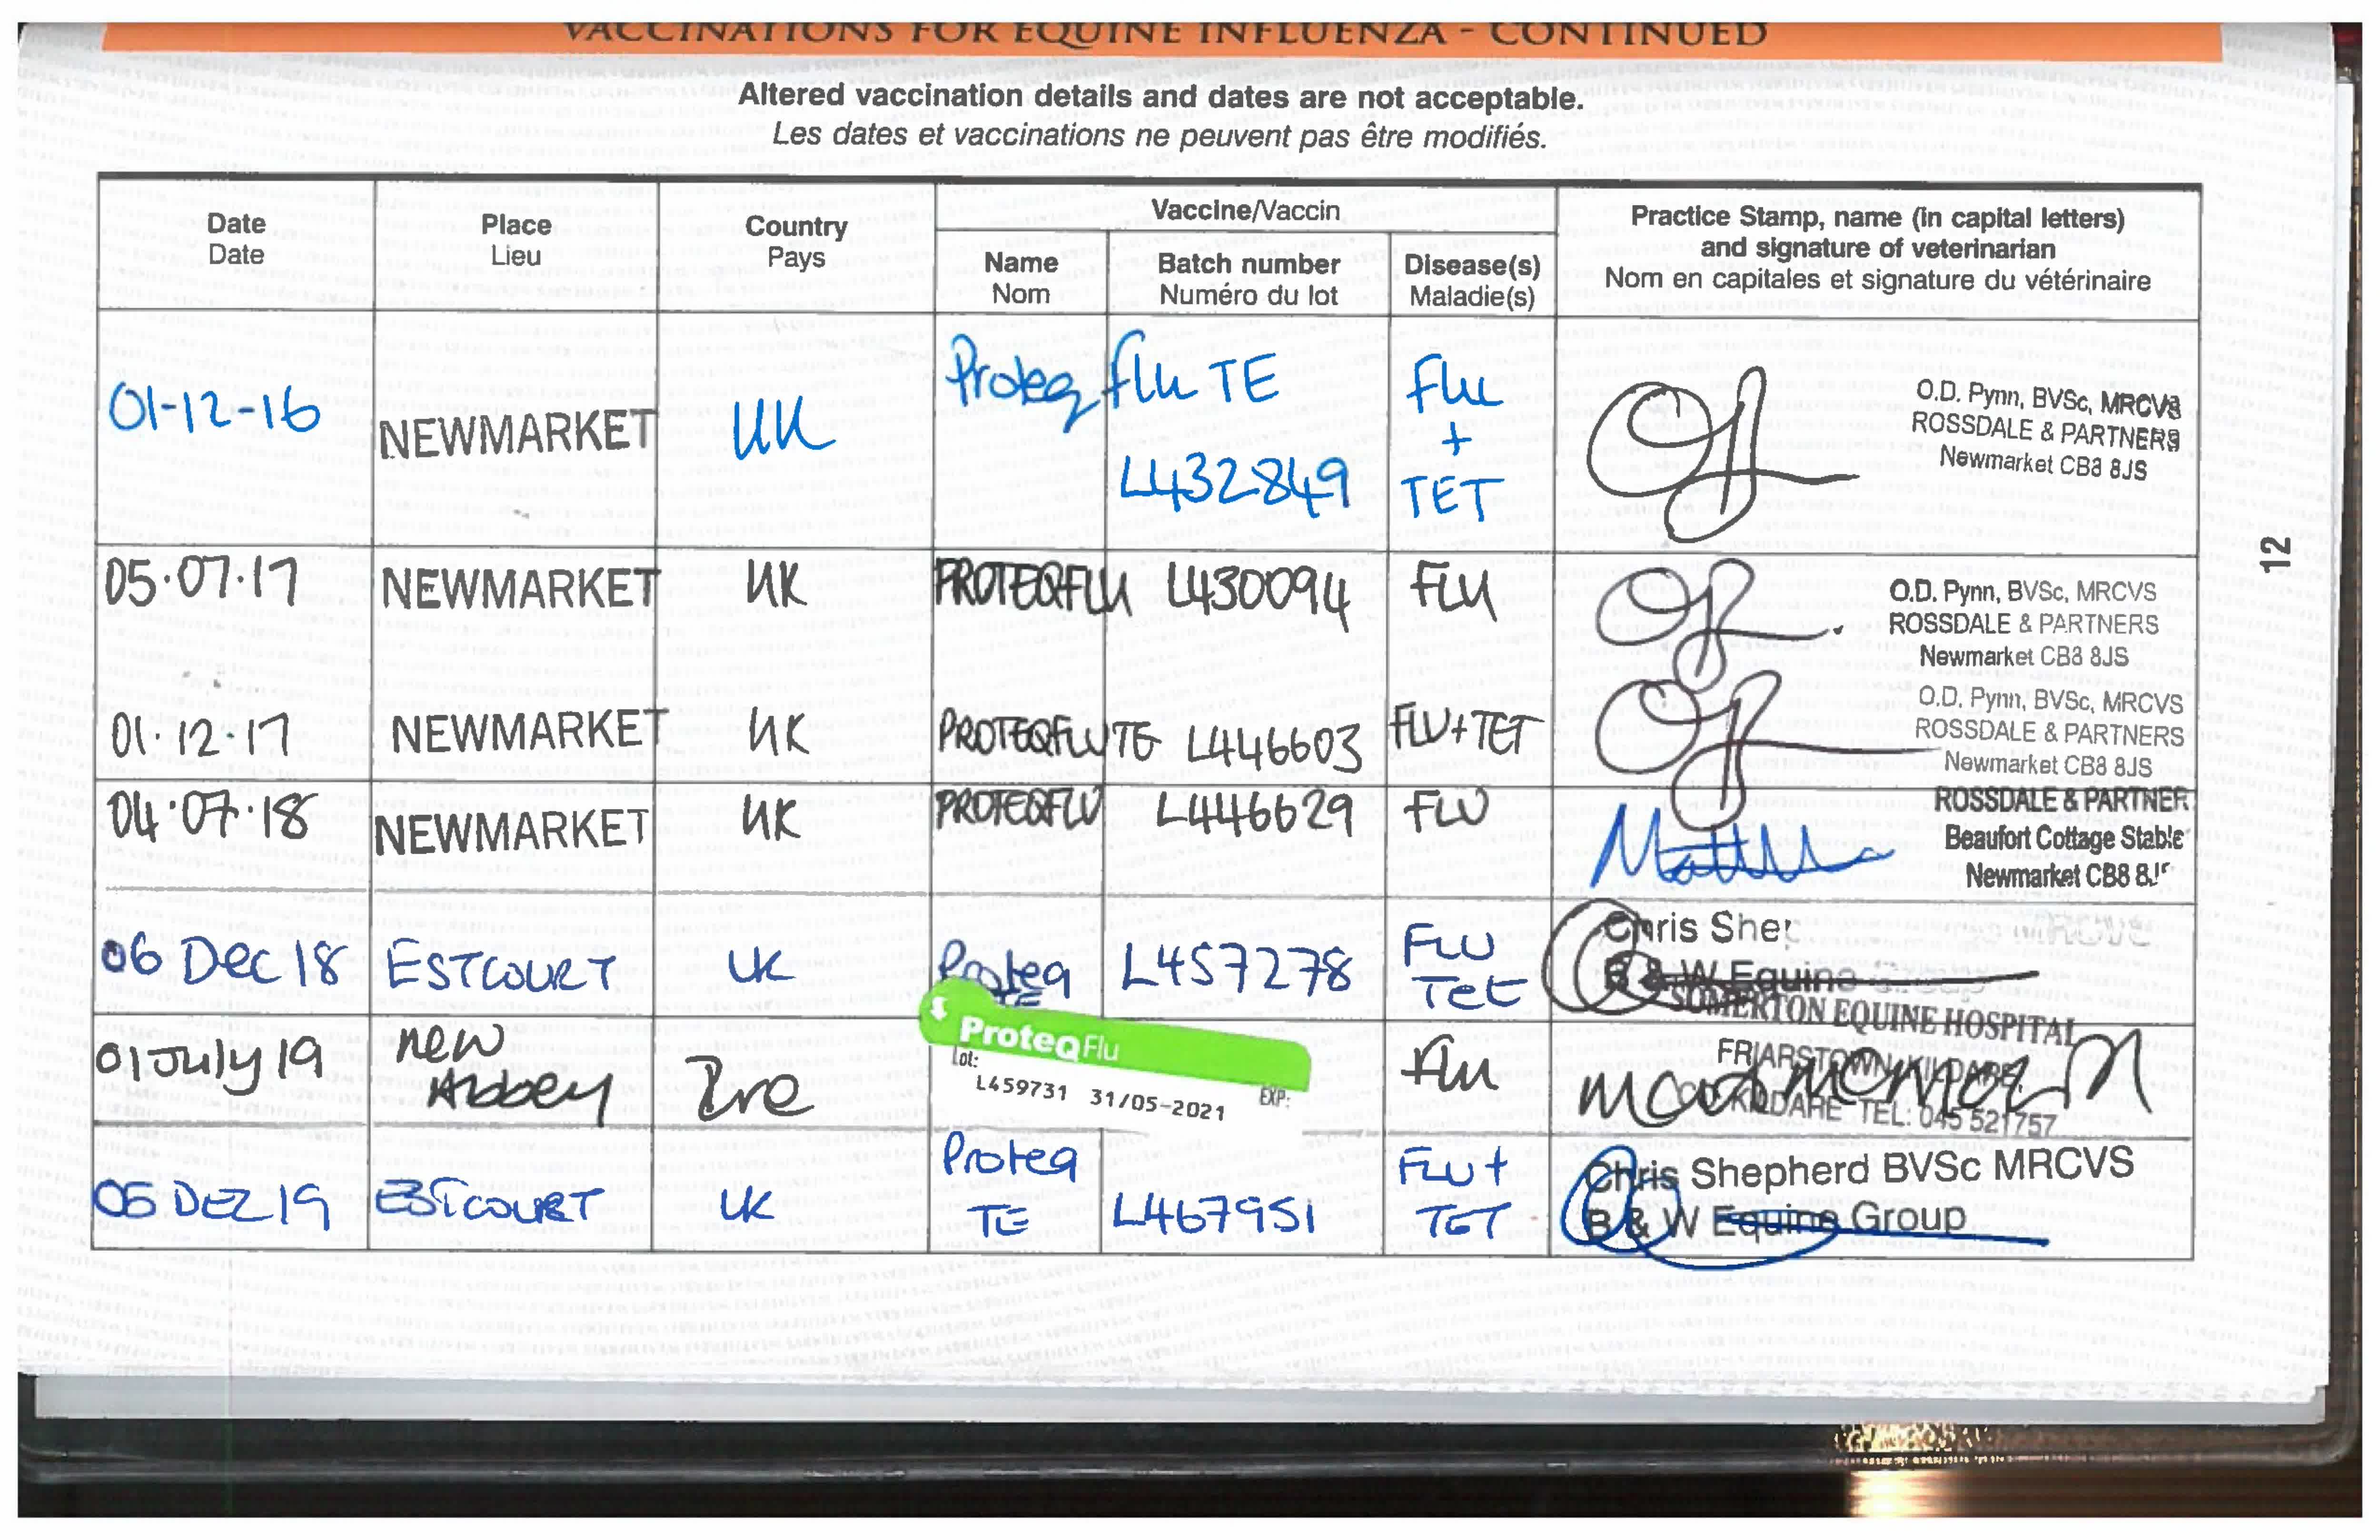 VACCINATIONS FOR EQUINE INFLUENZA - CONTINUED
Altered vaccination details and dates are not acceptable.
Les dates et vaccinations ne peuvent pas être modifiés.
Date Place Country Vaccine/Vaccin Practice Stamp, name (in capital letters)
Date Lieu Pays and signature of veterinarian
Name Batch number Disease(s) Nom en capitales et signature du vétérinaire
Nom Numéro du lot Maladie(s)
01-12-16 NEWMARKET UK Proteq flu TE L432849 Flu + TET
O.D. Pynn, BVSc, MRCVS
ROSSDALE & PARTNERS
Newmarket CB8 8JS
05.07.17 NEWMARKET UK PROTEQFLU L430094 FLU
O.D. Pynn, BVSc, MRCVS
ROSSDALE & PARTNERS
Newmarket CB8 8JS
01.12.17 NEWMARKET UK PROTEQFLU TE L446603 FLU+TET
O.D. Pynn, BVSc, MRCVS
ROSSDALE & PARTNERS
Newmarket CB8 8JS
04.07.18 NEWMARKET UK PROTEQFLU L446629 FLU
ROSSDALE & PARTNER
Beaufort Cottage Stable
Newmarket CB8 8J
06 Dec 18 ESTCOURT UK Proteq TE L457278 FLU Tet
Chris She
B & W Equine
01 July 19 New Abbey Ire
ProteqFlu
Lot: EXP:
L459731 31/05-2021
Flu
SOMERTON EQUINE HOSPITAL
FRIARSTOWN, KILDARE,
CO. KILDARE. TEL: 045 521757
05 DEZ 19 ESTCOURT UK Proteq TE L467951 FLU + TET
Chris Shepherd BVSc MRCVS
B & W Equine Group
12